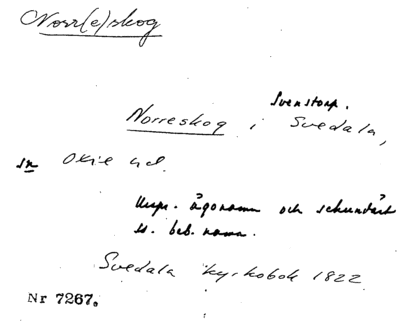 Norr(e)skog
Svenstorp.
Norreskog i Svedala,
sn Oxie hd.
Urspr. ägonamn och sekundärt
ss. beb.namn.
Svedala kyrkobok 1822
Nr 7267.